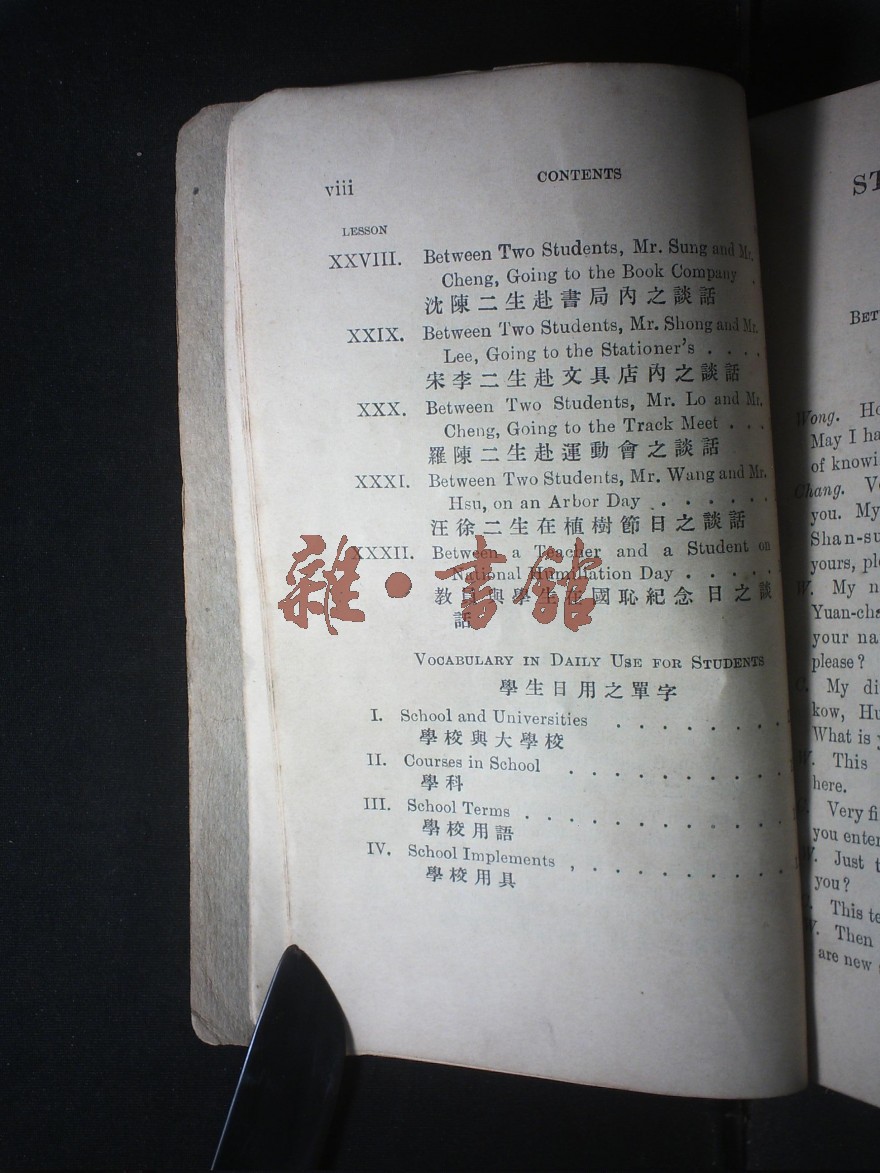 viii CONTENTS
LESSON
XXVIII. Between Two Students, Mr. Sung and Mr.
Cheng, Going to the Book Company .
沈陳二生赴書局內之談話
XXIX. Between Two Students, Mr. Shong and Mr.
Lee, Going to the Stationer's . . . .
宋李二生赴文具店內之談話
XXX. Between Two Students, Mr. Lo and Mr.
Cheng, Going to the Track Meet . . .
羅陳二生赴運動會之談話
XXXI. Between Two Students, Mr. Wang and Mr.
Hsu, on an Arbor Day . . . . . .
汪徐二生在植樹節日之談話
XXXII. Between a Teacher and a Student on
National Humiliation Day . . . . .
教員與學生在國恥紀念日之談
話
雜·書館
VOCABULARY IN DAILY USE FOR STUDENTS
學生日用之單字
I. School and Universities . . . . . . .
學校與大學校
II. Courses in School . . . . . . . . .
學科
III. School Terms . . . . . . . . . . .
學校用語
IV. School Implements , . . . . . . . . .
學校用具
ST
BET
Wong. Ho
May I ha
of knowi
Chang. Ve
you. My
Shan-su
yours, ple
W. My n
Yuan-cha
your na
please?
C. My di
kow, Hu
What is y
W. This
here.
C. Very fi
you enter
W. Just t
you?
This te
W. Then
are new